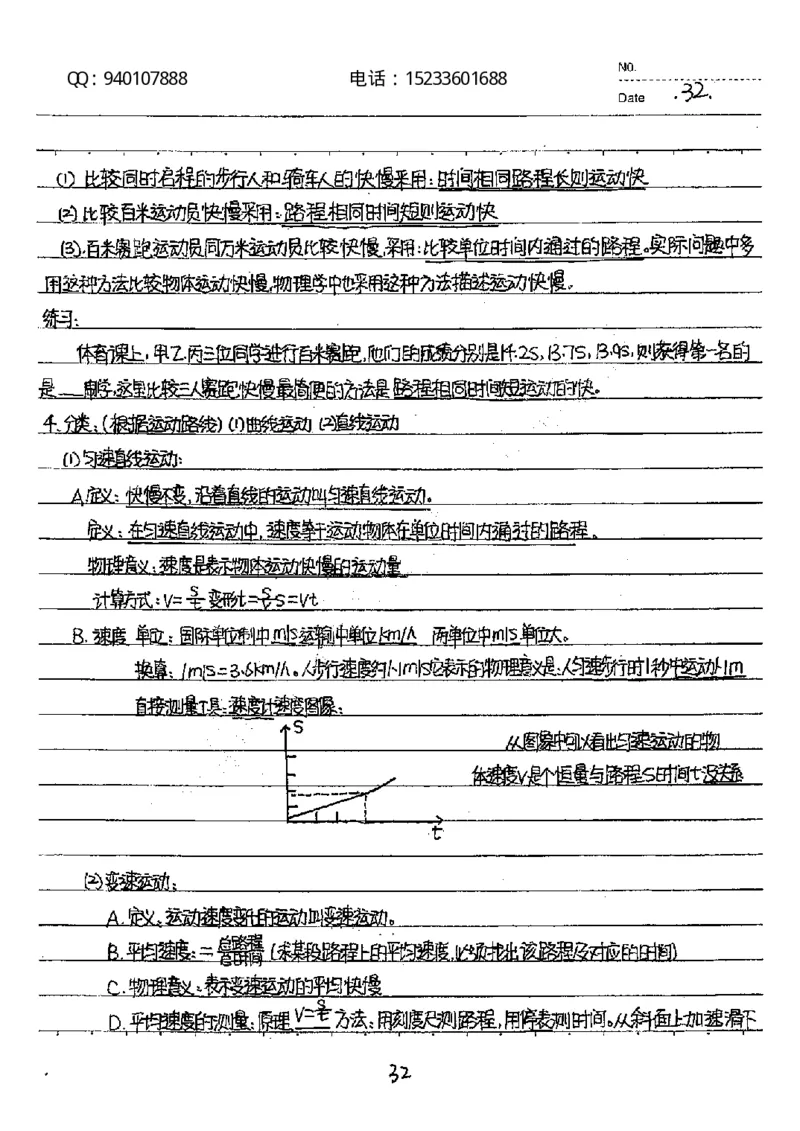 QQ：940107888 电话：15233601688 No.
Date .32.
(1) 比较同时启程的步行人和骑车人的快慢采用：时间相同路程长则运动快
(2)比较百米运动员快慢采用：路程相同时间短则运动快
(3).百米赛跑运动员同万米运动员比较快慢,采用：比较单位时间内通过的路程。实际问题中多
用这种方法比较物体运动快慢,物理学中也采用这种方法描述运动快慢。
练习：
体育课上，甲乙丙三位同学进行百米赛跑,他们的成绩分别是14.2S,13.7S,13.9S,则获得第一名的
是___同学,这里比较三人赛跑快慢最简便的方法是路程相同时间短运动的快。
4.分类：(根据运动路线) (1)曲线运动 (2)直线运动
(1)匀速直线运动：
A.定义：快慢不变,沿着直线的运动叫匀速直线运动。
定义：在匀速直线运动中,速度等于运动物体在单位时间内通过的路程。
物理意义：速度是表示物体运动快慢的物理量
计算方式：V=S/t 变形t=S/v S=Vt
B.速度 单位：国际单位制中m/s运输中单位km/h 两单位中m/s单位大。
换算：1m/s=3.6km/h。人步行速度约1.1m/s它表示的物理意义是：人匀速步行时1秒中运动1.1m
直接测量工具：速度计速度图像：
S
从图象中可以看出匀速运动的物
体速度V是个恒量与路程S时间t没关系
t
(2)变速运动：
A.定义：运动速度变化的运动叫变速运动。
B.平均速度：=总路程/总时间 (求某段路程上的平均速度,必须找出该路程及对应的时间)
C.物理意义：表示变速运动的平均快慢
D.平均速度的测量：原理 V=S/t 方法：用刻度尺测路程,用停表测时间。从斜面上加速滑下
32